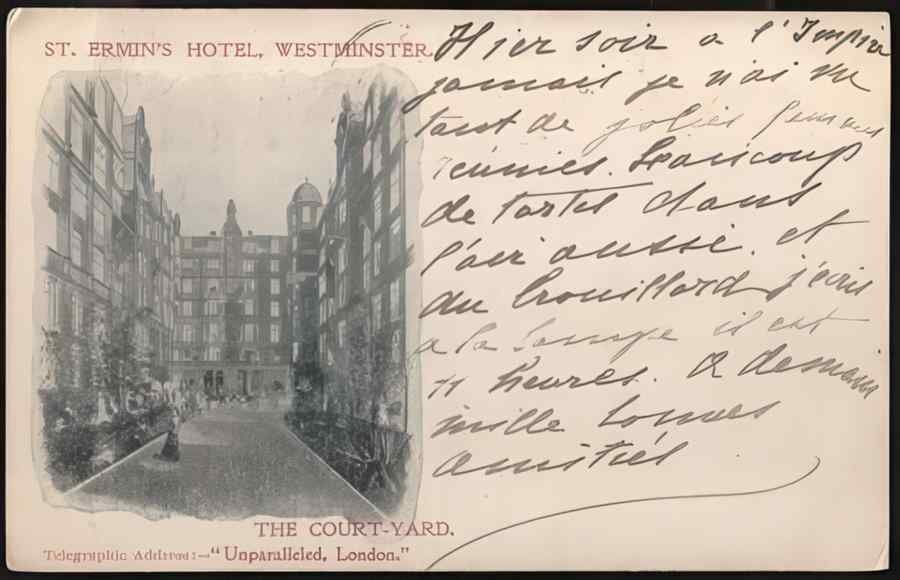 ST. ERMIN'S HOTEL, WESTMINSTER.
Hier soir a l'Empire
jamais je n'ai vu
tant de jolies femmes
réunies. Beaucoup
de tartes dans
l'air aussi. et
du brouillard j'écris
a la lampe il est
11 heures. a demain
mille bonnes
amitiés
THE COURT-YARD.
Telegraphic Address:—"Unparalleled, London."